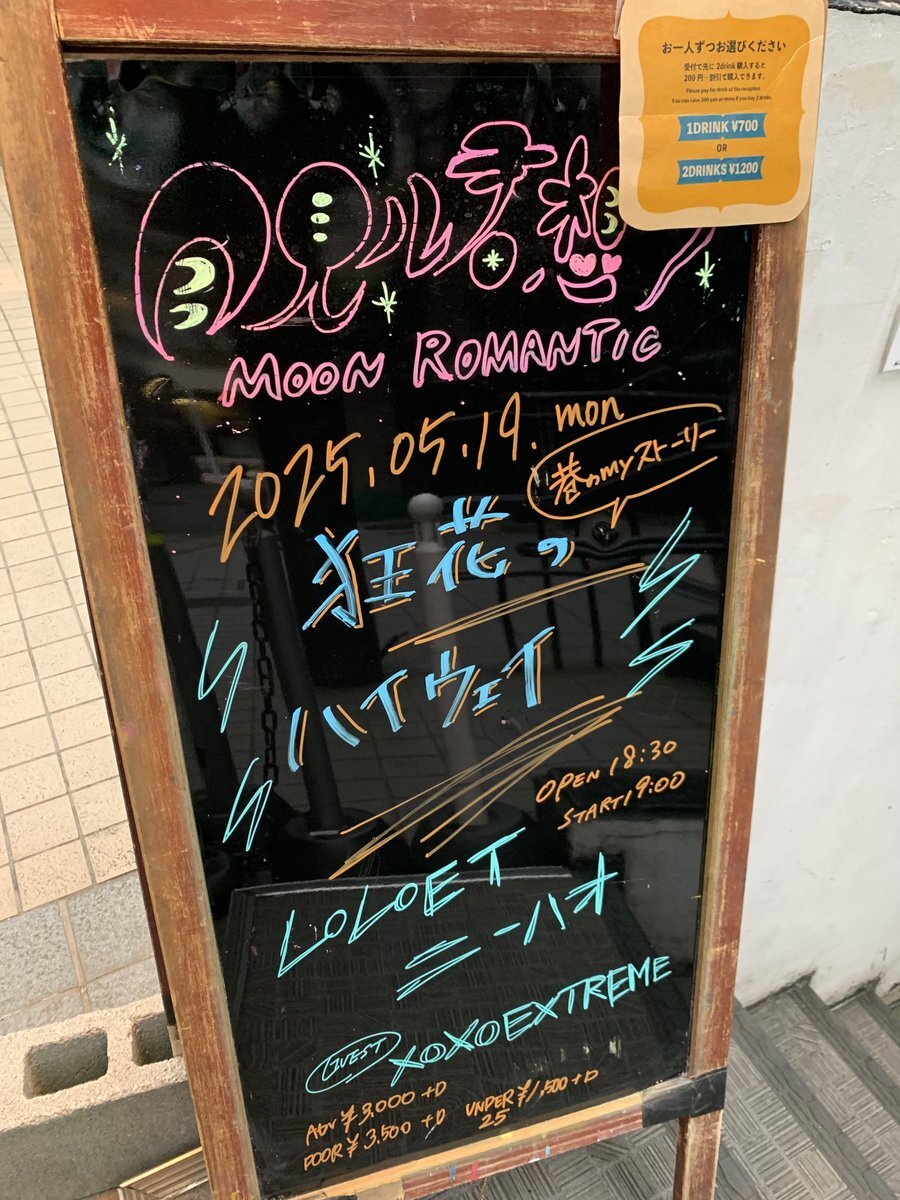 お一人ずつお選びください
受付で先に 2drink 購入すると
200 円〜割引で購入できます。
Please pay for drink at the reception
You can save 200 yen or more if you buy 2 drinks
1DRINK ¥700
OR
2DRINKS ¥1200
月見ル君想フ
MOON ROMANTIC
2025.05.19.mon
巷のmyストーリー
狂花の
ハイウェイ
OPEN 18:30
START 19:00
LOLOET
ニーハオ
GUEST XOXOEXTREME
ADV ¥3,000 +D
DOOR ¥3,500 +D
UNDER 25 ¥1,500+D